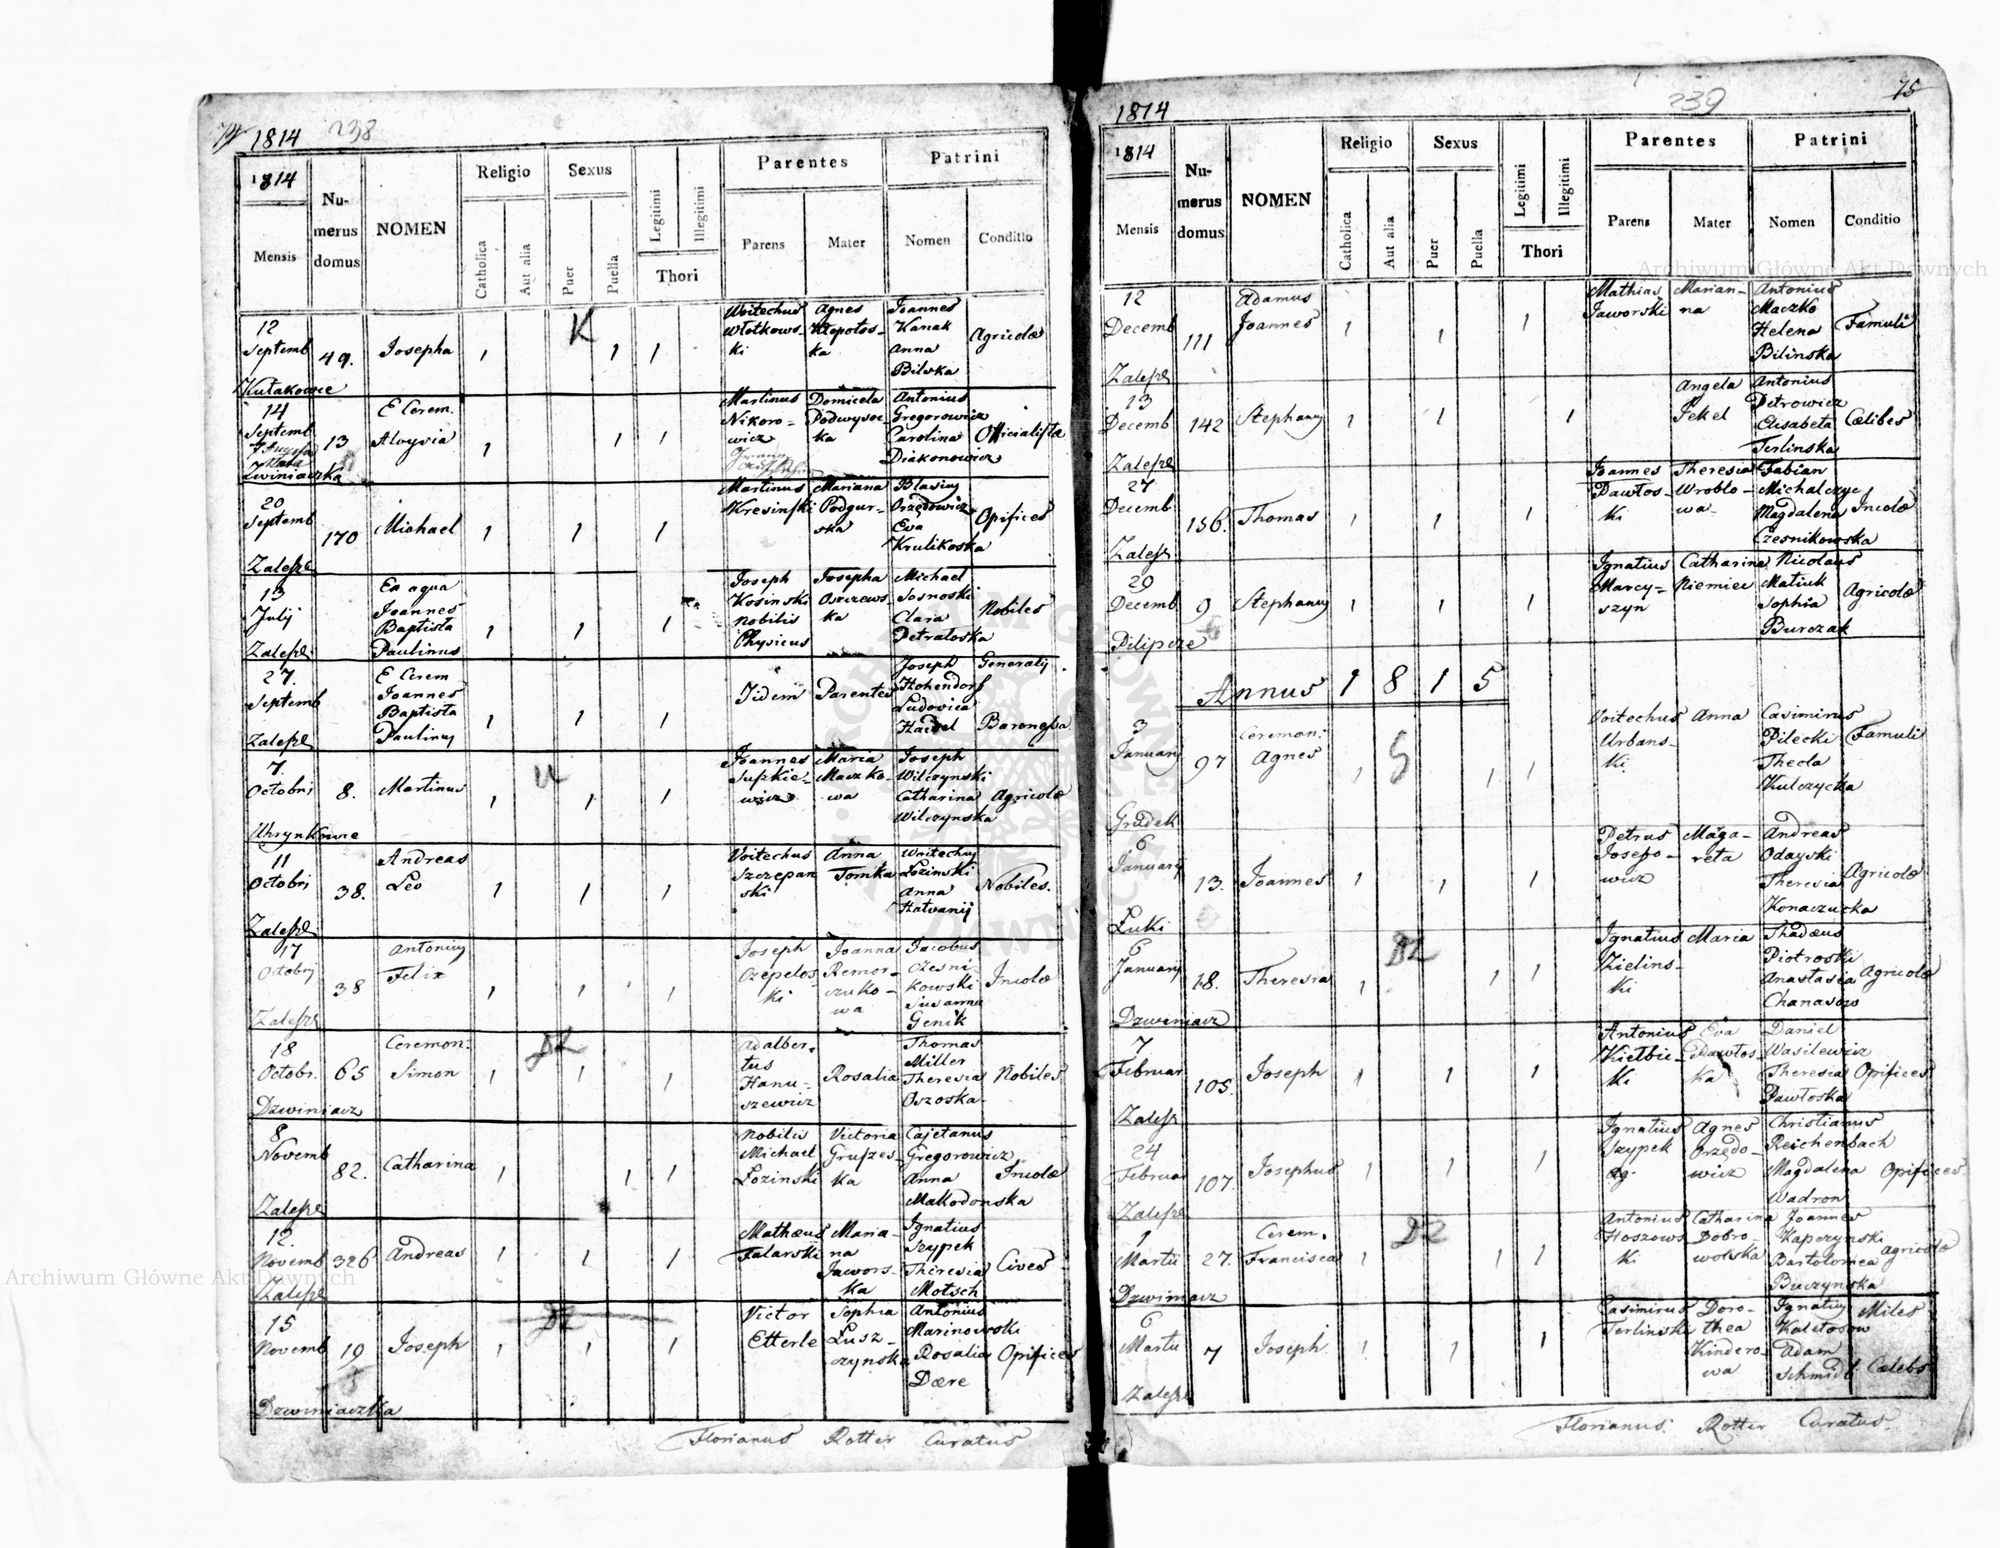 74 1814 238
1814
Mensis
Numerus domus
NOMEN
Religio
Catholica
Aut alia
Sexus
Puer
Puella
Legitimi
Illegitimi
Thori
Parentes
Parens
Mater
Patrini
Nomen
Conditio
12 Septemb Kułakowce 49. Josepha 1 K 1 1 Woitechus Włotkows-ki Agnes Kłopotos-ka Joannes Kanak Anna Bilska Agricolæ
14 Septemb Zwiniaczka 13 E Cerem. Aloysia 1 1 1 Martinus Nikoro-wicz Domicela Podwysoc-ka Antonius Gregorowicz Carolina Diakonowicz Officialista
20 Septemb Zaleszc 170 Michael 1 1 1 Martinus Kresinski Mariana Podgur-ska Blasius Orzędowicz Eva Krulikoska Opifices
13 Julij Zaleszc Ex aqua Joannes Baptista Paulinus 1 1 1 Joseph Kosinski nobilis Physicus Josepha Orzews-ka Michael Sosnoski Clara Petratoska Nobiles
27. Septemb Zaleszc E Cerem Joannes Baptista Paulinus 1 1 1 Iidem Parentes Joseph Hohendorf Generalij Ludovica Haidel Baronessa
7 Octobris Uhrynkowce 8. Martinus 1 1 1 Joannes Juszkie-wicz Maria Maczko-wa Joseph Wilczynski Catharina Wilczynska Agricolæ
11 Octobris Zaleszc 38. Andreas Leo 1 1 1 Voitechus Szczepanski Anna Tomka Woitechus Łozinski Anna Hatvanij Nobiles.
17 Octobrj Zaleszc 38 Antonius Felix 1 1 1 Joseph Czepelos-ki Joanna Remor-czuko-wa Jacobus Czesni-kowski Susanna Genik Incolæ
18 Octobr. Dzwiniacz 65 Ceremon. Simon 1 DZ 1 1 Adalber-tus Hanu-szewicz Rosalia Thomas Miller Theresia Oszoska Nobiles
8 Novemb Zaleszc 82. Catharina 1 1 1 Nobilis Michael Łozinski Victoria Gruszes-ka Cajetanus Gregorowicz Anna Makodonska Incolæ
12. Novemb Zaleszc 326 Andreas 1 1 1 Mathæus Talarski Maria-na Jawors-ka Ignatius Szypek Theresia Motsch Cives
15 Novemb Dzwiniaczka 19 Joseph 1 DZ 1 1 Victor Etterle Sophia Lusz-czynska Antonius Marinowski Rosalia Dære Opifices
Florianus Rotter Curatus
1814 239 75
1814
Mensis
Numerus domus
NOMEN
Religio
Catholica
Aut alia
Sexus
Puer
Puella
Legitimi
Illegitimi
Thori
Parentes
Parens
Mater
Patrini
Nomen
Conditio
12 Decemb Zaleszc 111 Adamus Joannes 1 1 1 Mathias Jaworski Marian-na Antonius Maczko Helena Bilinska Famuli
13 Decemb Zaleszc 142 Stephanus 1 1 1 Angela Jekel Antonius Petrowicz Elisabeta Terlinska Cælibes
27 Decemb Zalesz 156. Thomas 1 1 1 Joannes Pawłos-ki Theresia Wroblo-wa Fabian Michalczyc Magdalena Czesnikowska Incolæ
29 Decemb Pilipcze 9 Stephanus 1 1 1 Ignatius Marcy-szyn Catharina Niemiec Nicolaus Matiuk Sophia Burczak Agricolæ
Annus 1815
3 January Grudek 97 Ceremon: Agnes 1 G 1 1 Voitechus Urbans-ki. Anna Casimirus Pilecki Thecla Kulczycka Famuli
6 January Łuki 13. Joannes 1 1 1 Petrus Josefo-wicz Maga-reta Andreas Odayski Theresia Konaczucka Agricolæ
6 January Dzwiniacz 18. Theresia 1 DZ 1 1 Ignatius Zielins-ki Maria Thadæus Piotroski Anastasia Chanasow Agricolæ
7 Februar Zalesz 105. Joseph 1 1 1 Antonius Kietbic-ki Eva Pawłos-ka Daniel Wasilewicz Theresia Pawłoska Opifices
24 Februar Zaleszc 107. Josephus 1 1 1 Ignatius Szypek Agnes Orzędo-wicz Christianus Reichenbach Magdalena Wadron Opifices
1 Martii Dzwiniacz 27. Cerem. Francisca 1 DZ 1 1 Antonius Hoszows-ki Catharina Dobro-wolska Joannes Kapczynski Bartolomea Buczynska agricolæ
6 Martii Zaleszc 7 Joseph. 1 1 1 Casimirus Terlinski Doro-thea Kindero-wa Ignatius Kaletosow Miles Adam Schmidt Cælebs
Florianus Rotter Curatus.
Archiwum Główne Akt Dawnych
Archiwum Główne Akt Dawnych